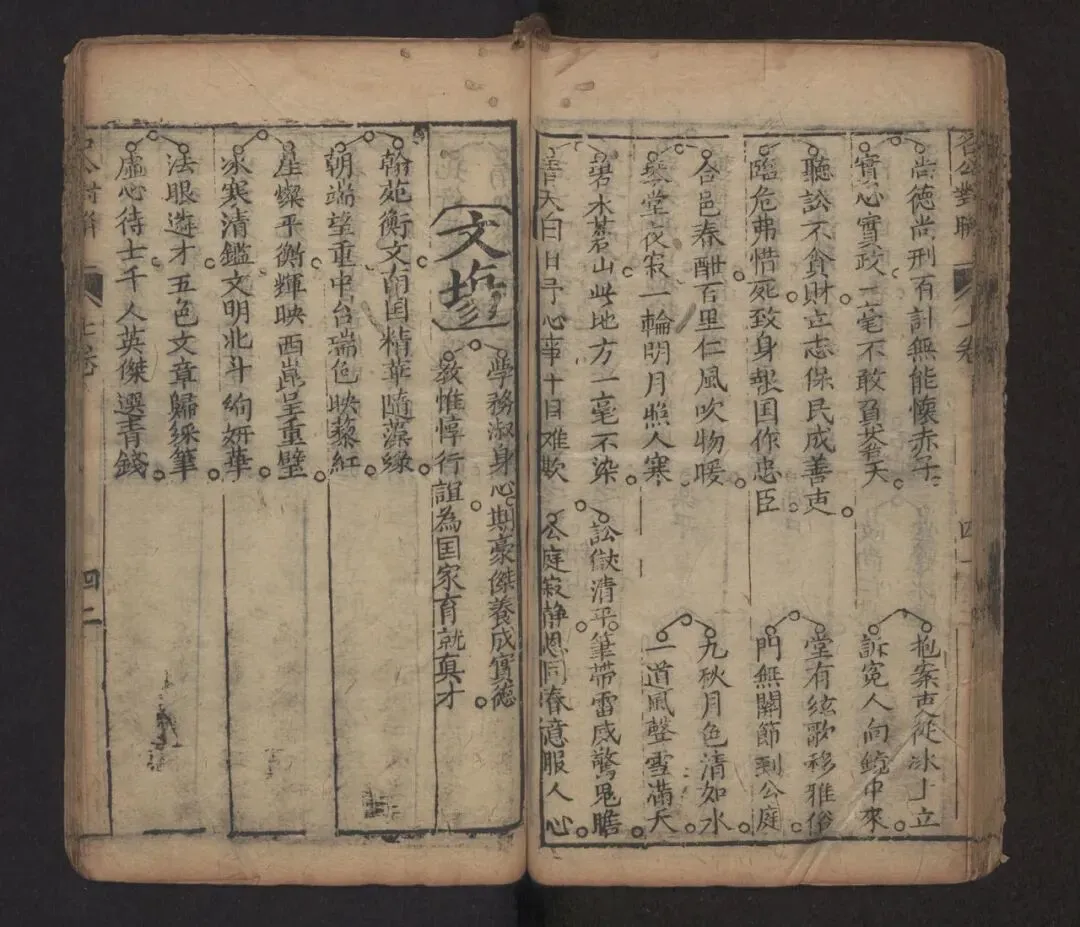 名公對聯
卷
四一
尚德尚刑有計無能懷赤子
實心實政一毫不敢負蒼天
抱案吏從冰上立
訴冤人向鏡中來
聽訟不貪財立志保民成善吏
臨危弗惜死致身報国作忠臣
堂有絃歌移雅俗
門無關節到公庭
合邑春酣百里仁風吹物暖
琴堂夜寂一輪明月照人寒
九秋月色清如水
一道風聲雪滿天
碧水茗山此地方一毫不染
青天白日予心事十目难欺
訟獄清平筆帶雷威驚鬼膽
公庭寂静恩同春意服人心
文塲
學務淑身心期豪傑養成實德
教惟惇行誼為国家育就真才
翰苑衡文南国精華隨藻綠
朝端望重中台瑞色映藜紅
星燦平衡輝映西崑呈重璧
冰寒清鑑文明北斗絢妍華
法眼遴才五色文章歸綵筆
虛心待士千人英傑選青錢
名公對聯
七卷
四二